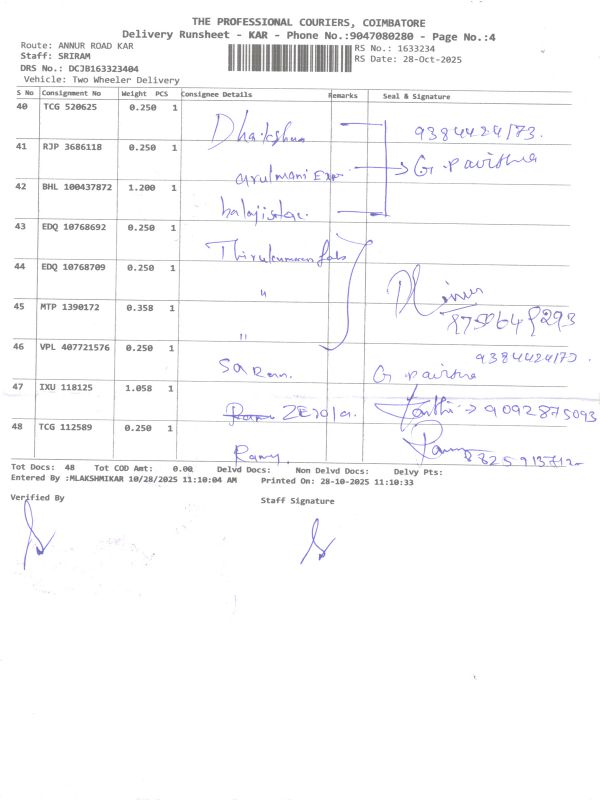 THE PROFESSIONAL COURIERS, COIMBATORE
Delivery Runsheet - KAR - Phone No.:9047080280 - Page No.:4
Route: ANNUR ROAD KAR
RS No.: 1633234
Staff: SRIRAM
RS Date: 28-Oct-2025
DRS No.: DCJB163323404
Vehicle: Two Wheeler Delivery
S No Consignment No Weight PCS Consignee Details Remarks Seal & Signature
40 TCG 520625 0.250 1 Dhakshna 9384424173.
41 RJP 3686118 0.250 1 arulmani Exp. G. pavithra
42 BHL 100437872 1.200 1 balajistar.
43 EDQ 10768692 0.250 1 Thirukumaran fab
44 EDQ 10768709 0.250 1 "
45 MTP 1390172 0.358 1 "
46 VPL 407721576 0.250 1 Saran. G pavithra 9384424173.
47 IXU 118125 1.058 1 → 9092875093
48 TCG 112589 0.250 1 Ramy
Tot Docs: 48 Tot COD Amt: 0.00 Delvd Docs: Non Delvd Docs: Delvy Pts:
Entered By :MLAKSHMIKAR 10/28/2025 11:10:04 AM Printed On: 28-10-2025 11:10:33
Verified By
Staff Signature